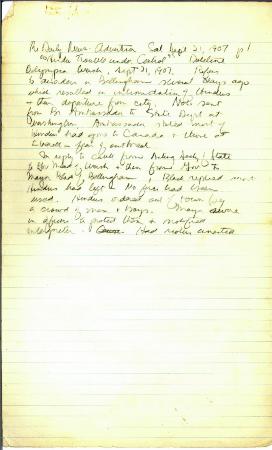 The Daily News-Advertiser Sat Sept 21, 1907 p1
"Hindu Trouble under Control" Dateline
Olympia Wash, Sept 21, 1907. Refers
to in Bellingham several days ago
which resulted in intimidating Hindus
& their departure from city. Note sent
from Br Ambassador to State Dept at
Washington. Ambassador stated most of
Hindus had gone to Canada & those at
in fear of outbreak.
In reply to from Acting Secty State
to Gov Mead, Wash & then from Gov to
Mayor Black, Bellingham, Black replied most
Hindus had left & No fires had been
used. Hindus ordered out of town by
a crowd of men & boys. Mayor swore
in officers to protect them & notified
interpreter. Had rioters arrested